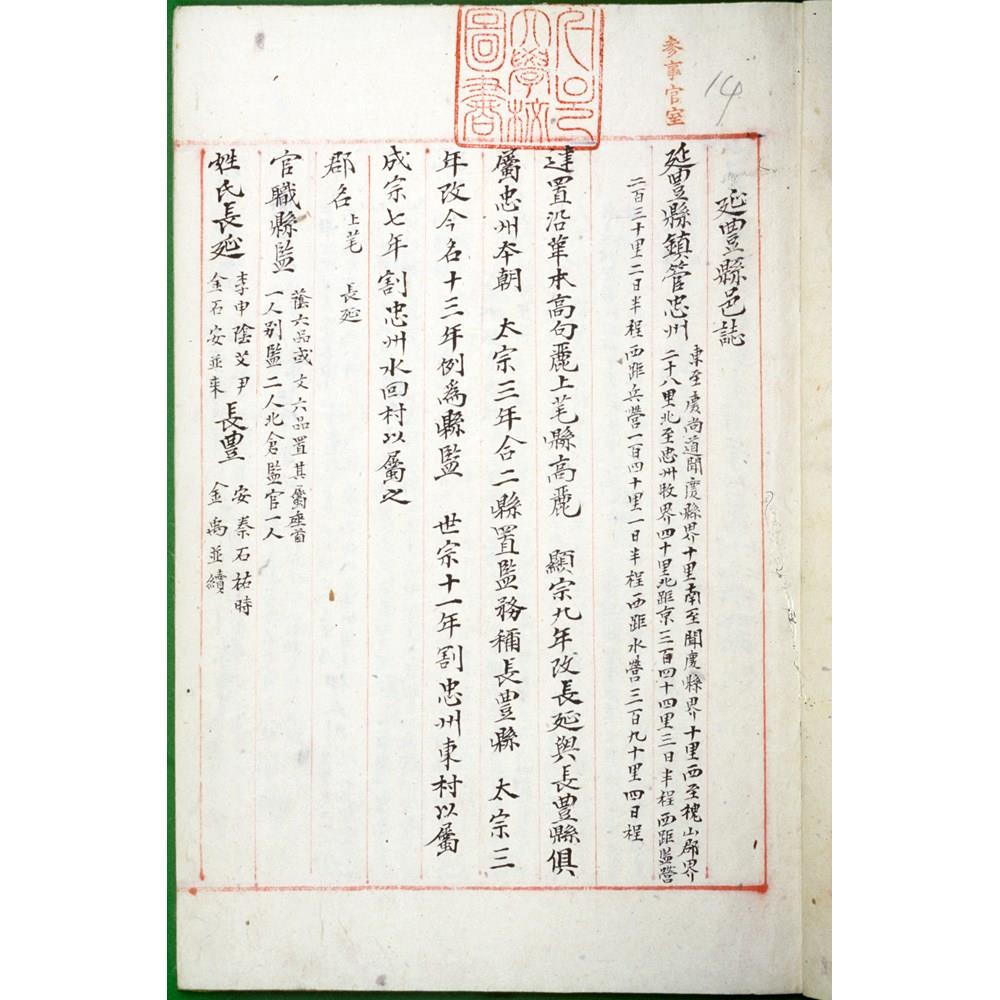 參事官室
14
大學校
圖書
延豊縣邑誌
延豊縣鎮管忠州 東至慶尚道聞慶縣界十里南至聞慶縣界十里西至槐山郡界
二十八里北至忠州牧界四十里北距京三百四十四里三日半程西距監營
二百三十里二日半程西距兵營一百四十里一日半程西距水營三百九十里四日程
建置沿革本高句麗上芼縣高麗 顯宗九年改長延與長豊縣俱
屬忠州本朝 太宗三年合二縣置監務稱長豊縣 太宗三
年改今名十三年例爲縣監 世宗十一年割忠州東村以屬
成宗七年割忠州水回村以屬之
郡名 上芼 長延
官職縣監 蔭六品或文六品置其屬座首
一人別監二人北倉監官一人
姓氏長延 李申陰艾尹 長豊 安秦石祐時
金石安並来 金禹並續